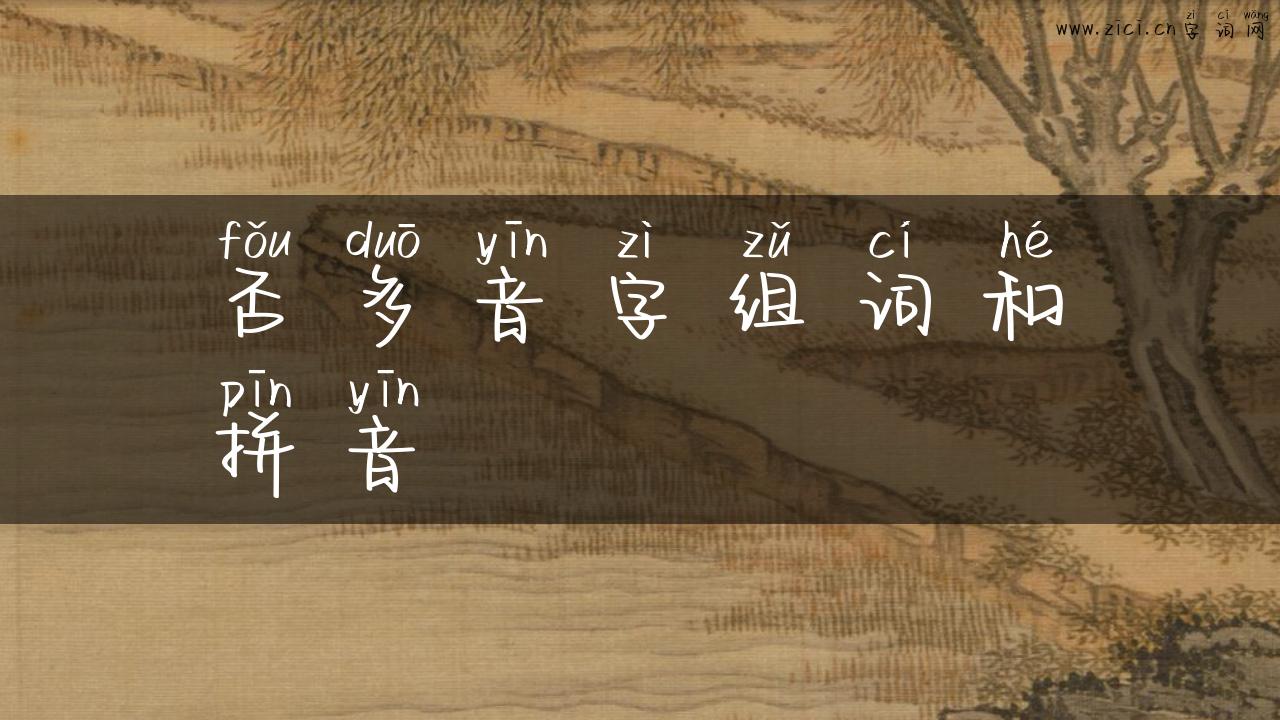 zì cí wǎng
www.zici.cn字词网
fǒu duō yīn zì zǔ cí hé
否多音字组词和
pīn yīn
拼音